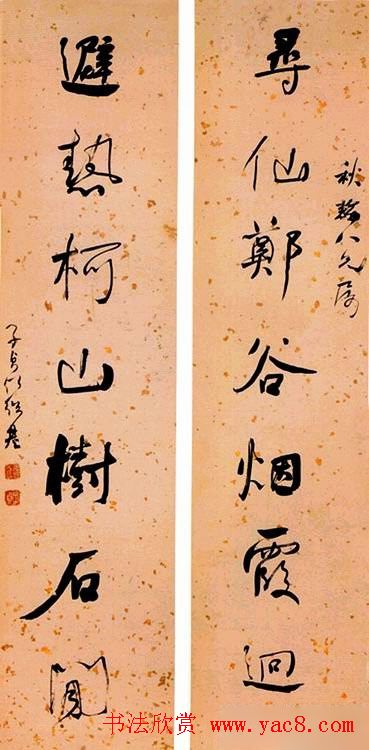 尋仙鄭谷烟霞迥
秋八兄屬
避熱柯山樹石閒
子貞何紹基
书法欣赏 www.yac8.com